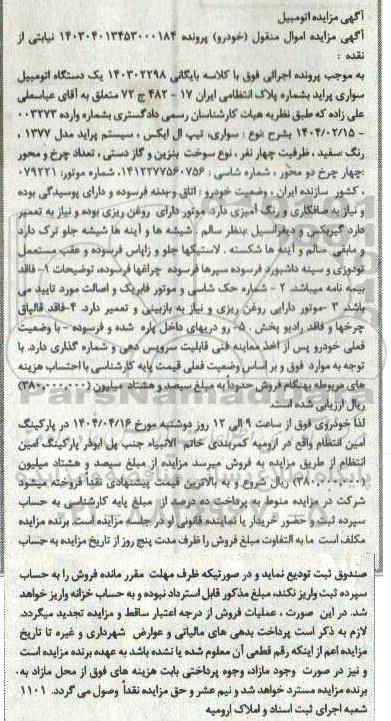 آگهی مزایده اتومبیل
آگهی مزایده اموال منقول (خودرو) پرونده ۱۴۰۳۰۴۰۱۳۴۵۳۰۰۰۱۸۴ نیابتی از
نقده :
به موجب پرونده اجرائی فوق با کلاسه بایگانی ۱۴۰۳۰۲۲۹۸ یک دستگاه اتومبیل
سواری پراید بشماره پلاک انتظامی ایران ۱۷ - ۴۸۲ ج ۷۲ متعلق به آقای عباسعلی
علی زاده که طبق نظریه هیات کارشناسان رسمی دادگستری بشماره وارده ۰۰۳۲۷۳
- ۱۴۰۴/۰۲/۱۵ بشرح نوع : سواری، تیپ ال ایکس ، سیستم پراید مدل ۱۳۷۷ ،
رنگ :سفید ، ظرفیت چهار نفر ، نوع سوخت بنزین و گاز دستی ، تعداد چرخ و محور
:چهار چرخ دو محور ، شماره شاسی : ۱۴۱۲۲۷۷۵۶۰۷۵۶، شماره موتور: ۰۷۹۲۲۱
، کشور سازنده ایران ، وضعیت خودرو : اتاق وبدنه فرسوده و دارای پوسیدگی بوده
و نیاز به صافکاری و رنگ آمیزی دارد. موتور دارای روغن ریزی بوده و نیاز به تعمیر
دارد گیربکس و دیفرانسیل :بنظر سالم . شیشه ها و آینه ها شیشه جلو ترک دارد
و مابقی سالم و آینه ها شکسته . لاستیکها جلو و زاپاس فرسوده و عقب مستعمل
تودوزی و سینه داشبورد فرسوده سپرها فرسوده چراغها فرسوده، توضیحات ۱- فاقد
بیمه نامه میباشد. ۲ - شماره حک شاسی و موتور فابریک و اصالت مورد تایید می
باشد. ۳ -موتور دارایی روغن ریزی و نیاز به بازبینی و تعمیر دارد. ۴-فاقد قالپاق
چرخها و فاقد رادیو پخش . ۵- رو دریهای داخل پاره شده و فرسوده - با وضعیت
فعلی خودرو پس از اخذ معاینه فنی قابلیت سرویس دهی و شماره گذاری دارد. با
توجه به موارد فوق و بر اساس وضعیت فعلی قیمت پایه کارشناسی با احتساب هزینه
های مربوطه بهنگام فروش حدوداً به مبلغ سیصد و هشتاد میلیون (۳۸۰,۰۰۰,۰۰۰)
ریال ارزیابی شده است.
لذا خودروی فوق از ساعت ۹ الی ۱۲ روز دوشنبه مورخ ۱۴۰۴/۰۴/۱۶ در پارکینگ
آمین انتظام واقع در ارومیه کمربندی خاتم الانبیاء جنب پل ابوذر پارکینگ آمین
انتظام از طریق مزایده به فروش میرسد مزایده از مبلغ سیصد و هشتاد میلیون
(۳۸۰,۰۰۰,۰۰۰) ریال شروع و به بالاترین قیمت پیشنهادی نقداً فروخته میشود
شرکت در مزایده منوط به پرداخت ده درصد از مبلغ پایه کارشناسی به حساب
سپرده ثبت و حضور خریدار یا نماینده قانونی او در جلسه مزایده است. برنده مزایده
مکلف است ما به التفاوت مبلغ فروش را ظرف مدت پنج روز از تاریخ مزایده به حساب
صندوق ثبت تودیع نماید و در صورتیکه ظرف مهلت مقرر مانده فروش را به حساب
سپرده ثبت واریز نکند، مبلغ مذکور قابل استرداد نبوده و به حساب خزانه واریز خواهد
شد. در این صورت ، عملیات فروش از درجه اعتبار ساقط و مزایده تجدید میگردد.
لازم به ذکر است پرداخت بدهی های مالیاتی و عوارض شهرداری و غیره تا تاریخ
مزایده اعم از اینکه رقم قطعی آن معلوم شده یا نشده باشد به عهده برنده مزایده است
و نیز در صورت وجود مازاد، وجوه پرداختی بابت هزینه های فوق از محل مازاد به
برنده مزایده مسترد خواهد شد و نیم عشر و حق مزایده نقداً وصول می گردد. ۱۱۰۱
شعبه اجرای ثبت اسناد و املاک ارومیه